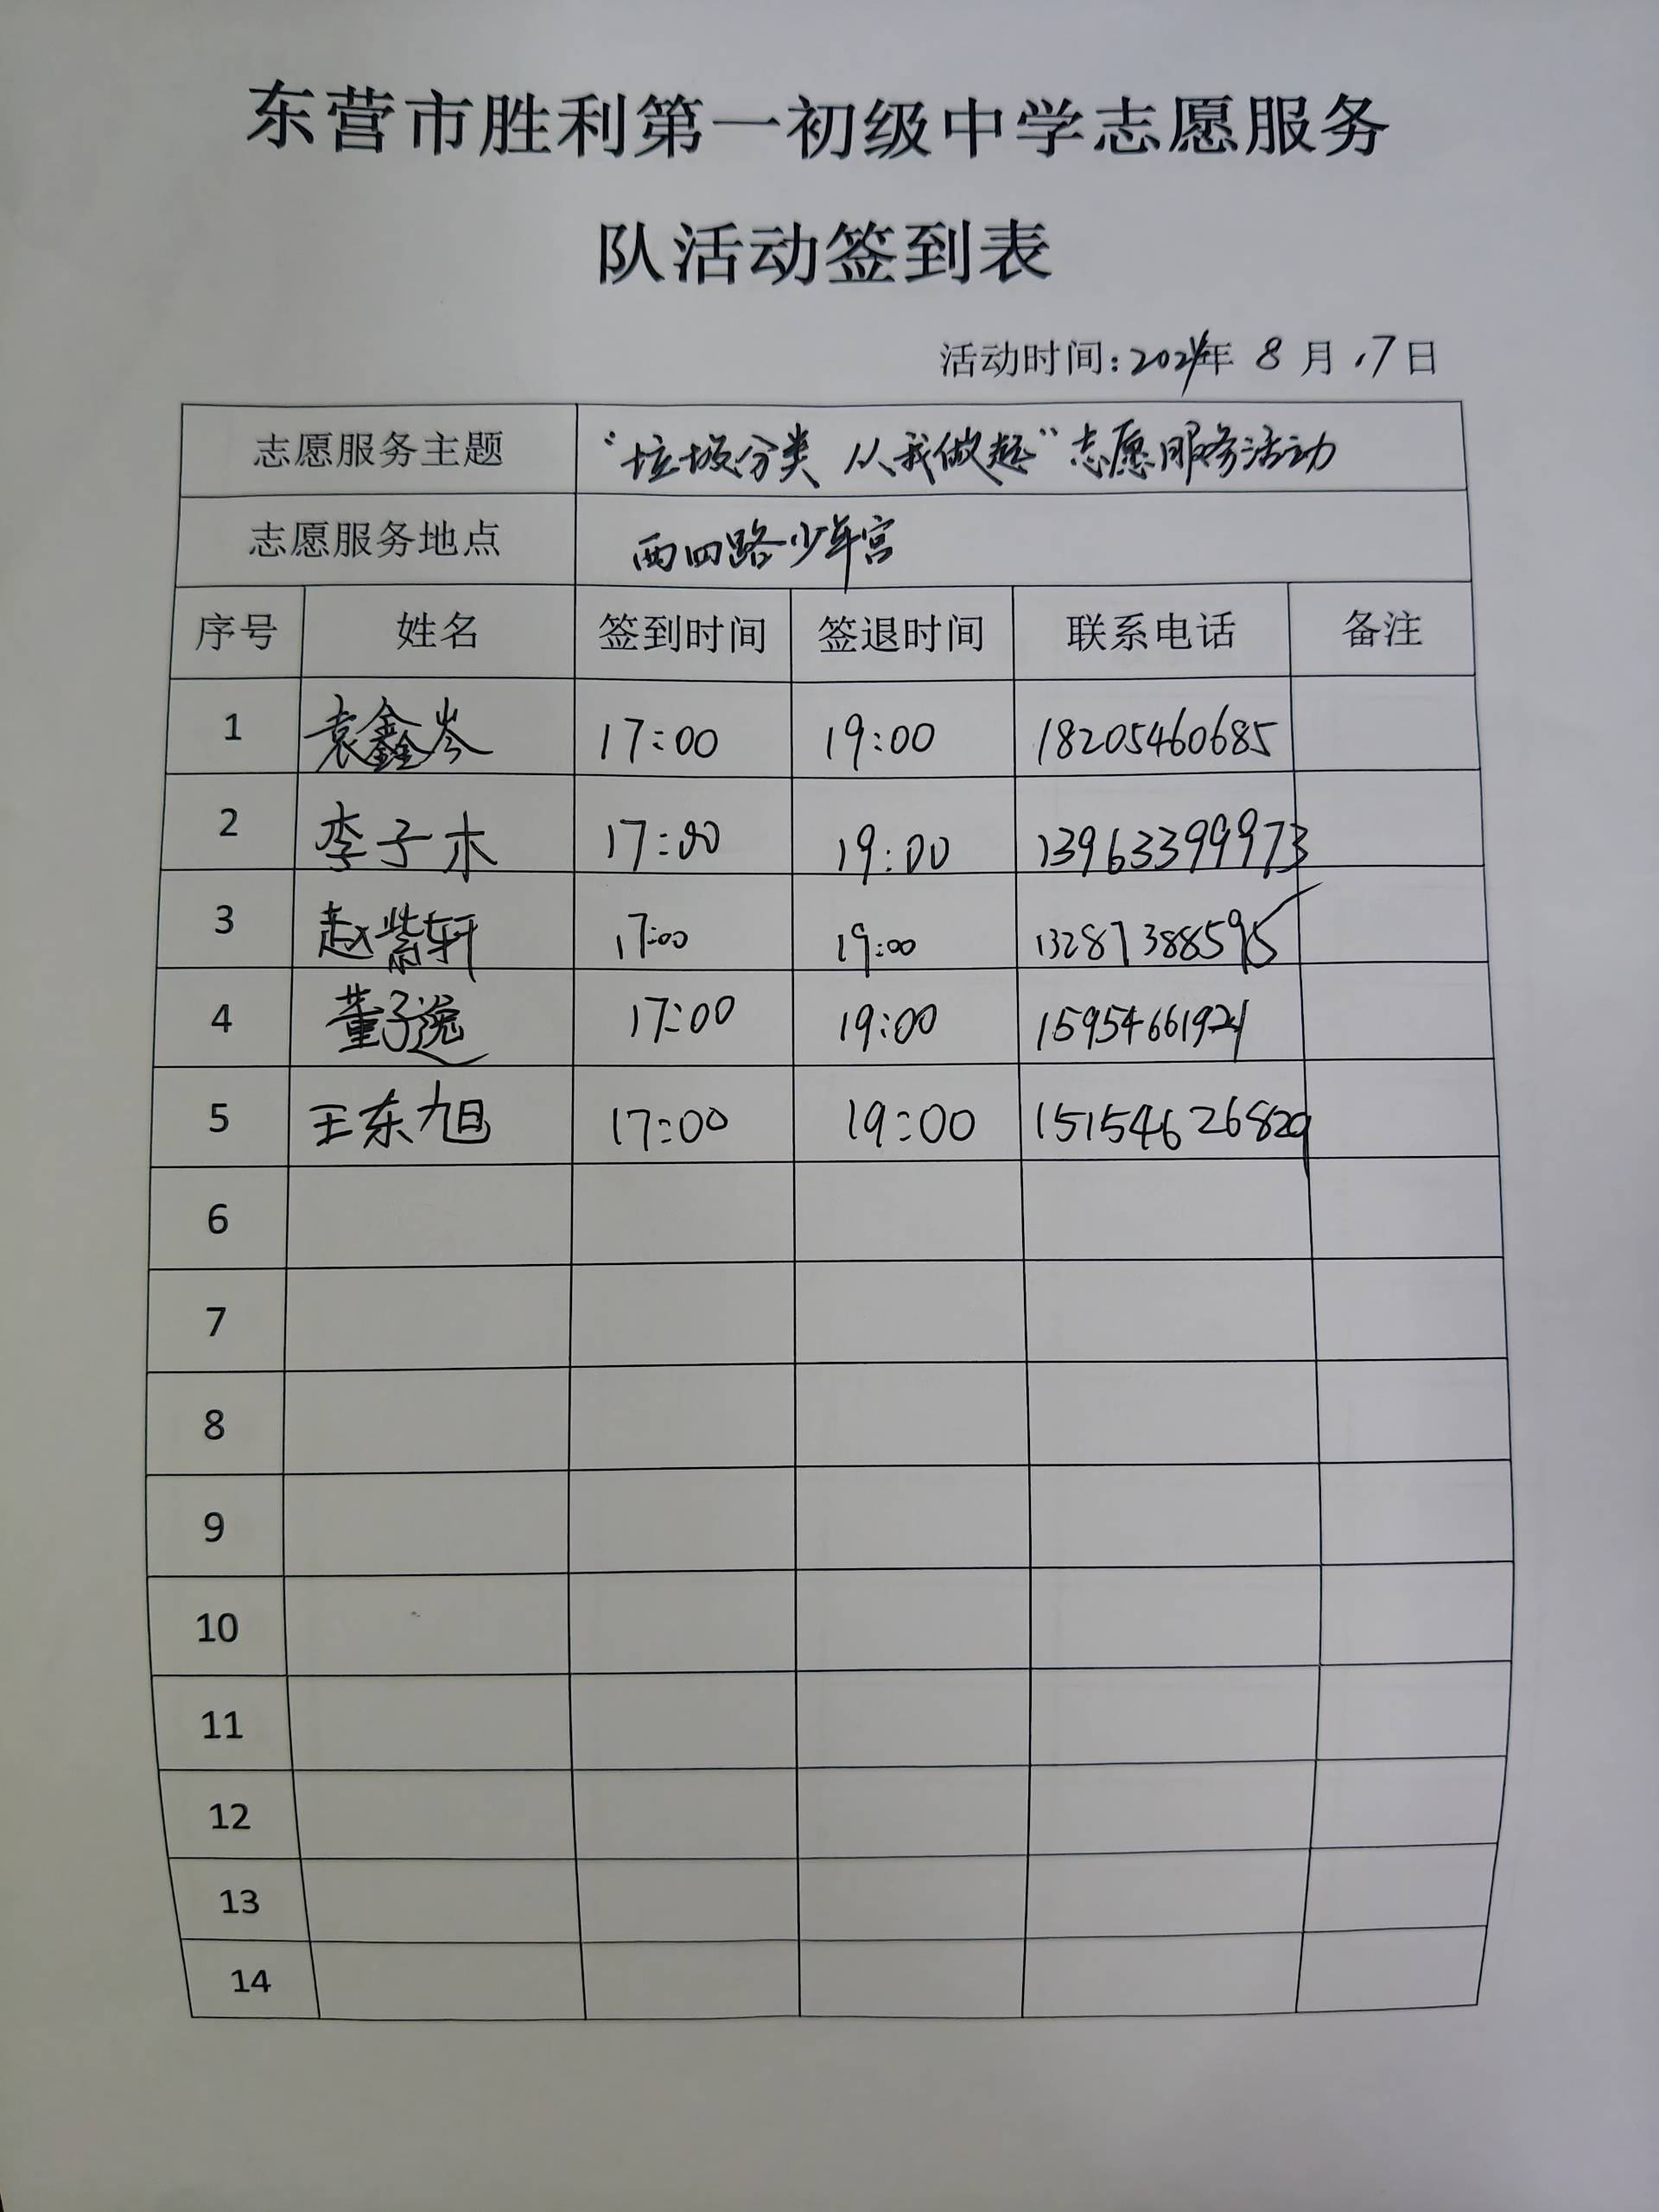 东营市胜利第一初级中学志愿服务
队活动签到表
活动时间：2024年 8 月 17 日
志愿服务主题 “垃圾分类 从我做起”志愿服务活动
志愿服务地点 西四路少年宫
序号 姓名 签到时间 签退时间 联系电话 备注
1 袁鑫岑 17:00 19:00 18205460685
2 李子木 17:00 19:00 13963399973
3 赵紫轩 17:00 19:00 13287388595
4 董子逸 17:00 19:00 15954661921
5 王东旭 17:00 19:00 15154626829
6
7
8
9
10
11
12
13
14